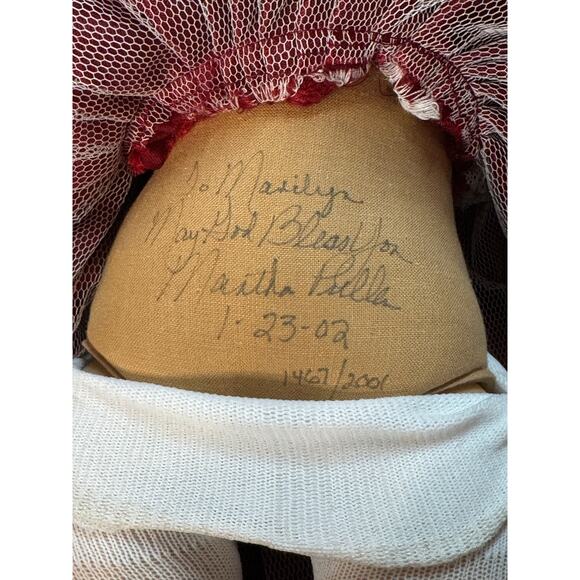 To Marilyn
May God Bless You
Martha Pullen
1-23-02
1467/2001